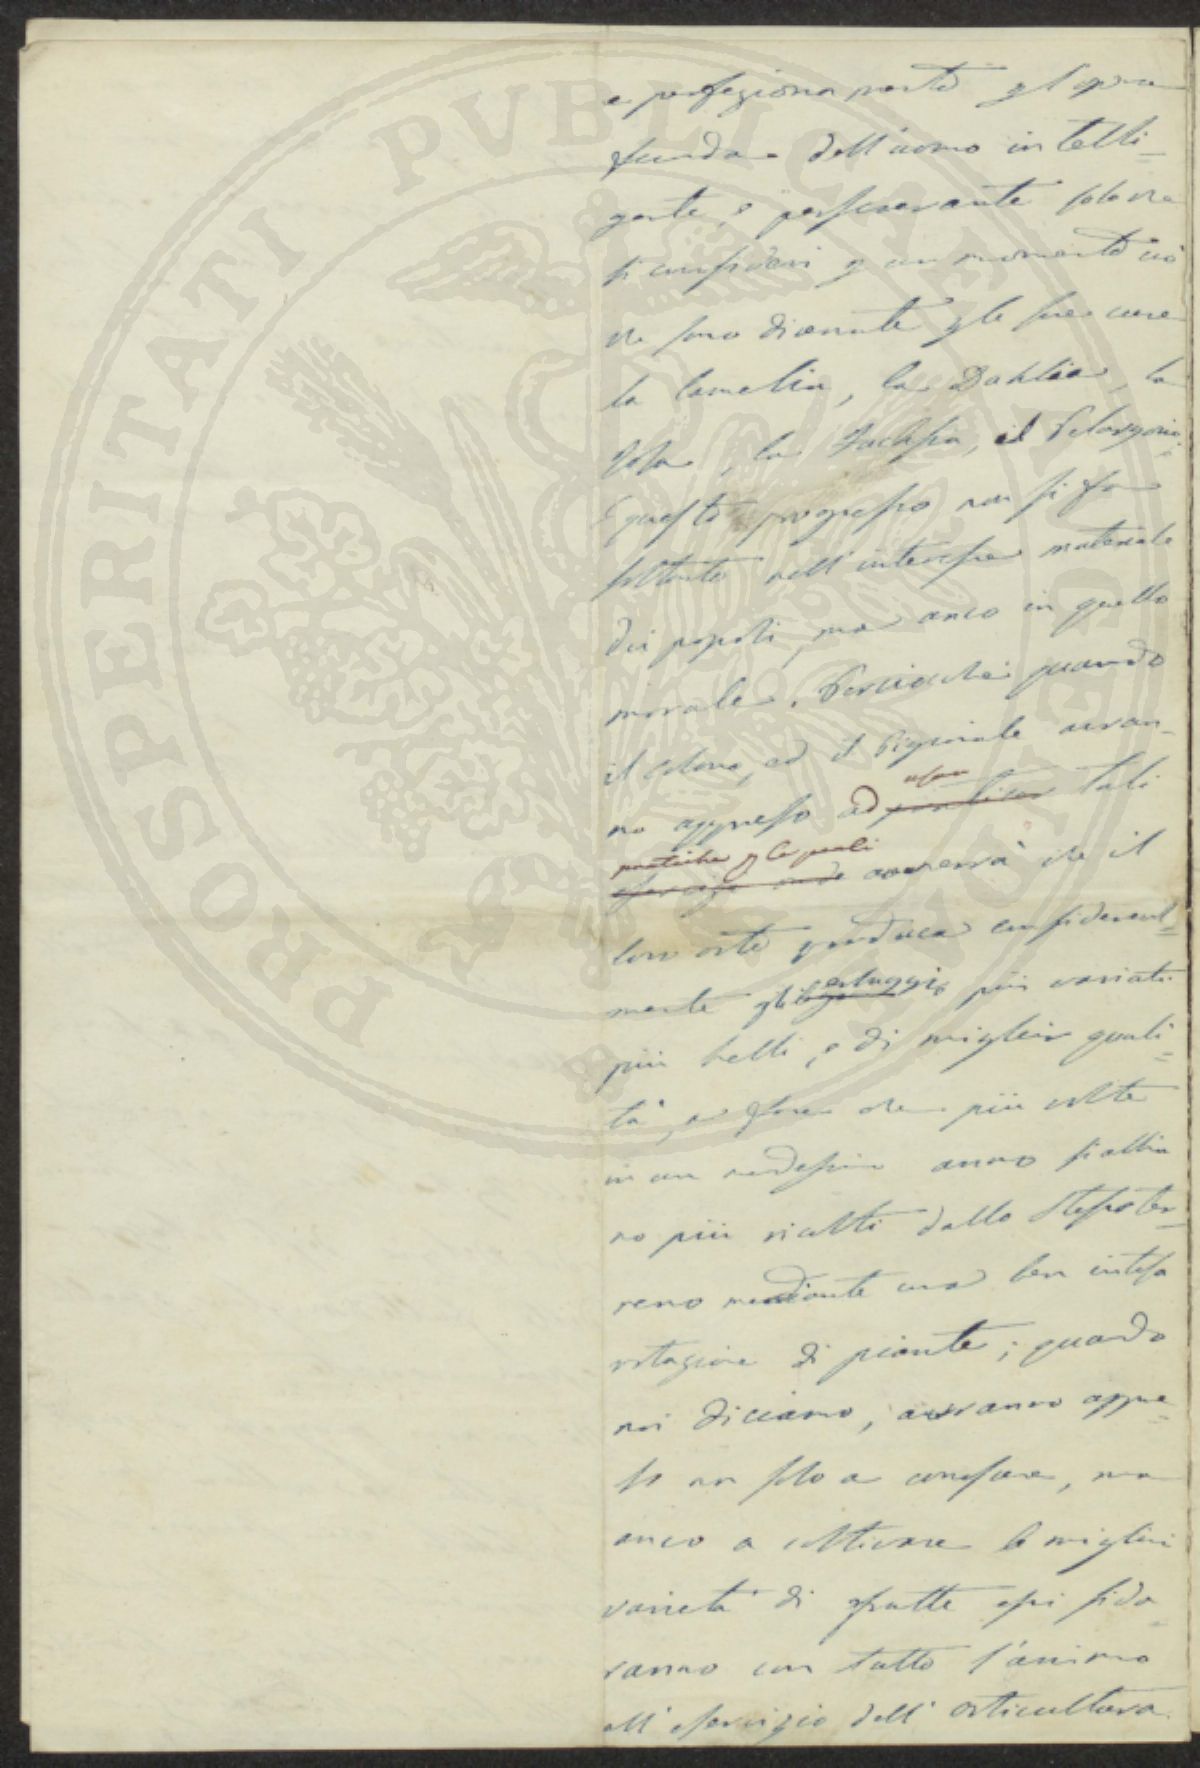 PROSPERITATI PUBLICAE AUGENDAE
e perfezionamento p l'opra
feconda dell'uomo intelli=
gente, e perseverante solo che
si consideri p un momento ciò
che sono divenute p le sue cure
la Camelia, la Dahlia, la
Rosa, la Fuchsia, il Pelargonio.
E questo progresso non si fa
soltanto nell'interesse materiale
dei popoli, ma anco in quello
morale. Perciocché quando
il colono, ed il Pigionale avran=
usare
no appreso ad tali
pratiche p le quali
esercizi onde avverrà che il
loro orto produca considerevol=
mente gli erbaggi più variati
più belli, e di miglior quali=
tà, e fare che più volte
in un medesimo anno si abbia
no più ricolti dallo stesso ter=
reno mediante una ben intesa
rotazione di piante; quando
noi diciamo, avranno appre=
so non solo a conoscere, ma
anco a coltivare le migliori
varietà di frutte essi si da=
ranno con tutto l'animo
all'esercizio dell'orticultura